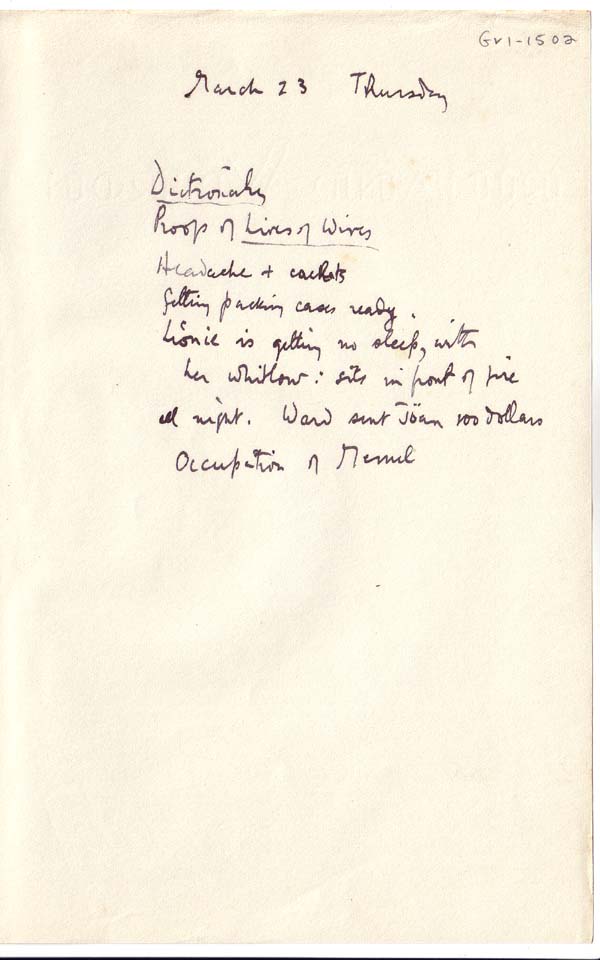 Gv1-1502
March 23 Thursday
Dictionary
Proofs of Lives of Wives
Headache + cachets
Getting packing cases ready.
Lönie is getting no sleep, with
her whitlow: sits in front of fire
all night. Ward sent Jöan 100 dollars
Occupation of Memel